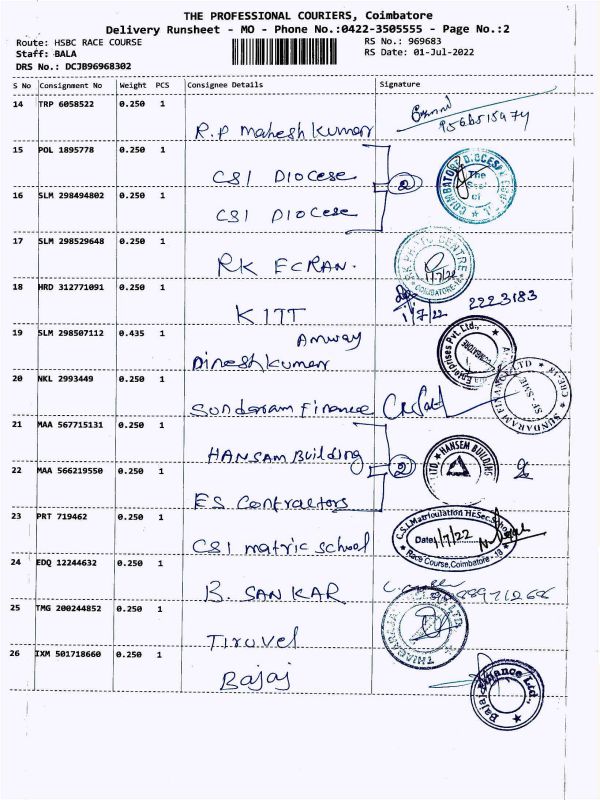 THE PROFESSIONAL COURIERS, Coimbatore
Delivery Runsheet - MO - Phone No.:0422-3505555 - Page No.:2
Route: HSBC RACE COURSE RS No.: 969683
Staff: BALA RS Date: 01-Jul-2022
DRS No.: DCJB96968302
S No Consignment No Weight PCS Consignee Details Signature
14 TRP 6058522 0.250 1
R.P Maheshkumar
15 POL 1895778 0.250 1
CSI DIOCESE 2
COIMBATORE DIOCESE
The Seal of
16 SLM 298494802 0.250 1
CSI DIOCESE
17 SLM 298529648 0.250 1
RK ECRAN.
CENTRE
COIMBATORE-18
1/7/22
18 HRD 312771091 0.250 1
KITT
1/7/22 2223183
19 SLM 298507112 0.435 1
Amway
Dineshkumar
Enterprises Pvt. Ltd.,
20 NKL 2993449 0.250 1
Sundaram Finance
SUNDARAM FINANCE LTD
SF-SME
CBE-18
21 MAA 567715131 0.250 1
HANSAM Building 2
HANSEM BUILDING
LTD.
22 MAA 566219550 0.250 1
ES Contractors
23 PRT 719462 0.250 1
CSI matric school
C.S.I. Matriculation HrSec. School
Date 1/7/22
Race Course, Coimbatore - 18
24 EDQ 12244632 0.250 1
B. SANKAR
25 TMG 200244852 0.250 1
Tiruvel
LTD.
26 IXM 501718660 0.250 1
Bajaj
Bajaj Finance Ltd.,